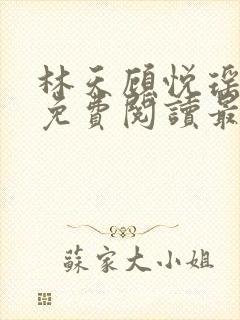 林天顾悦瑶
免費閱讀最
蘇家大小姐